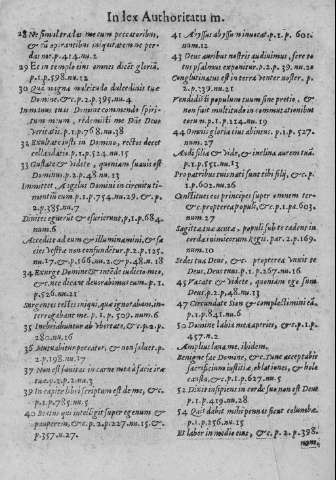 In lex Authoritatum.
28 Ne simul tradas me cum peccatoribus,
& cũ operantibus iniquitatem ne per-
das me. p.414.nu.2
29 Et in templo eius omnes dicẽt gloriã.
p.1.p.598.nu.12
30 Quã magna multitudo dulcedinis tuæ
Domine &c. p.2.p.395.nu.4
In manus tuas Domine commendo spiri-
tum meum, redemisti me Dñe Deus
veritatis. p.1.p.768.nu.38
32 Exultate iusti in Domino, rectos decet
collaudatio. p.1.p.124.nu.15
33 Gustate & videte, quoniam suauis est
Dominus. p.2.p.48.nu.13
Immittet Angelus Domini in circuitu ti-
mentiũ eum p.1.p.754.nu.29. & p.
2.p.385.nu.7
Diuites eguerũt & esurierunt, p.1.p.684.
num.6
Accedite ad eum & illuminamini, & fa
cies vestræ non confundetur. p.2.p.125.
nu.17. & p.166.nu.2. & p.48.nu.18
34 Exurge Domine & intẽde iudicio meo,
& c, nec dicant deuorabimus eum. p.1.
p.526.nu.21
Surgentes testes iniqui, quæ ignorabam, in-
terrogabant me. p. 1. p. 509. num.6
35 Inebriabuntur ab vbertate, &c. p.2.p.
280.nu.16
36 Mutuabitur peccator, & non soluet. p.
2.p.198.nu.17
37 Non est sanitas in carne mea à facie iræ
tuæ. p.2.p.2.nu.3
39 In capite libri scriptum est de me, &c.
p.1.p.785.nu.5
40 Beatus qui intelligit super egenum &
pauperem, &c. p.2.p.227.nu.15. &
p.357.n.27.
41 Abyssus abyssum inuocat. p.2.p. 601.
num.12
43 Deus auribus nostris audiuimus, fere to
tus psalmus exponitur. p.2.p.39.nu.20
Conglutinatus est in terra venter noster. p.
2.p.39.nu.21
Vendidisti populum tuum sine pretio, &
non fuit multitudo in commutationibus
eorum p.1.p.124.nu.19
44 Omnis gloria eius abintus. p.1.p.527.
num.21
Audi filia & vide, & inclina aurem tuã.
p.1.p.551.nu.13
Pro patribus tuis nati sunt tibi filij, & c. p.
1.p.602.nu.26
Constitues eos principes super omnem ter-
& c, propterea populi, &c. p.1.p.603.
num.27
Sagittæ tuæ acutæ, populi sub te cadent in
corda inimicorum Regis. par.2.p.169.
num.10
Sedes tua Deus, &c. propterea vnxit te
Deus, Deus tuus p.1.p.267.nu.16
45 Vacate & videte, quoniam ego sum
Deus. p.2.p.48.nu.13
47 Circundate Sion & complectimini eã.
p.1.p.841.nu.6
50 Domine labia mea aperies, &c. p.1.p.
457.n.2
Amplius laua me. ibidem.
Benigne fac Domine, &c. Tunc acceptabis
sacrificium iustitiæ, oblationes, & holo
causta, &c. p.1.p.627.nu.5
52 Dixit insipiens in corde suo non est Deus
p.1.p.419.nu.28
54 Quis dabit mihi pennas sicut columbæ.
p.1.p.356.nu.15.
Et labor in medio eius, &c. p. 2. p. 398.
nume.